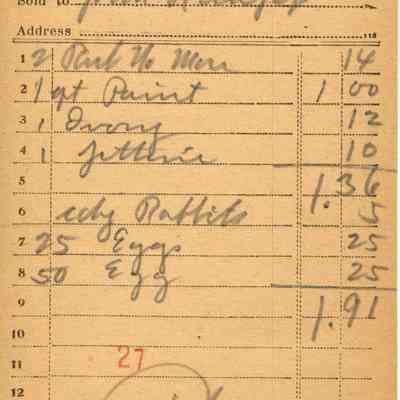 Sold to
Address
1 2 Rub No More 14
2 1 qt Paint 1 00
3 1 Ivory 12
4 1 10
5 1.36
6 Rabbits 5
7 25 Eggs 25
8 50 Egg 25
9 1.91
10
11 27
12